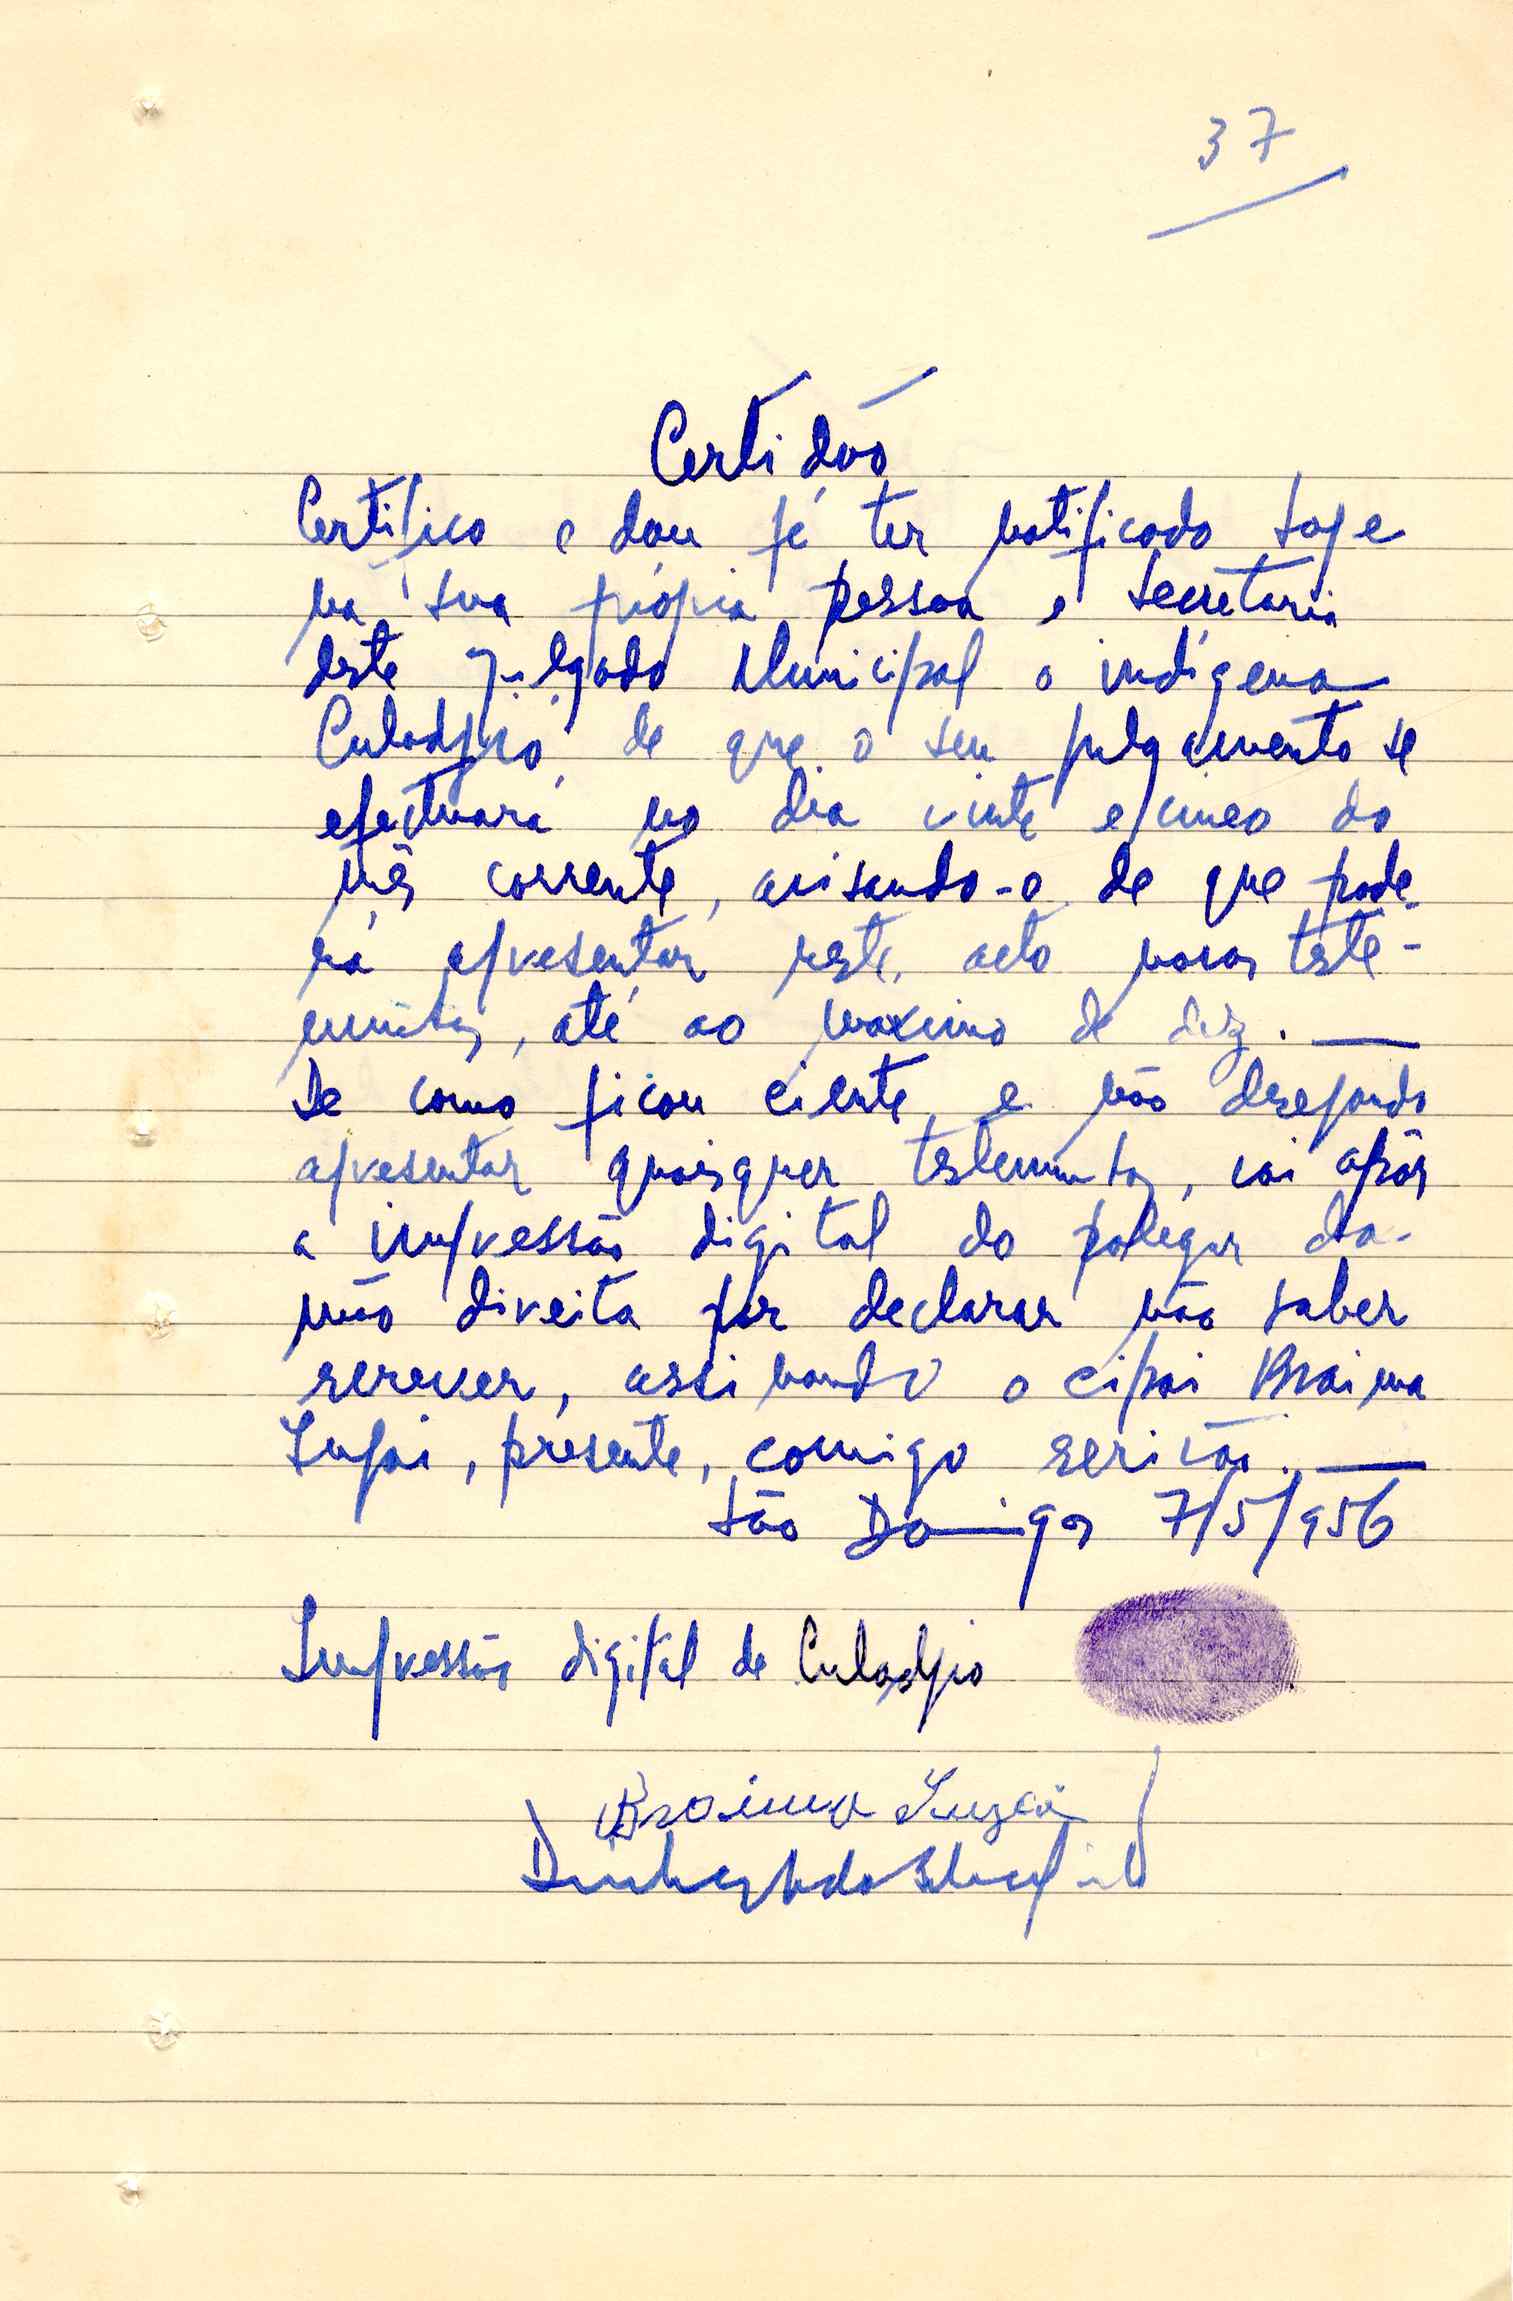 37
Certidão
Certifico e dou fé ter notificado hoje
na sua própria pessoa e secretaria
deste Julgado Municipal o indígena
Culadjio, de que o seu julgamento se
efectuará no dia vinte e cinco do
mês corrente, avisando-o de que pode-
rá apresentar neste acto novas teste-
munhas, até ao maximo de dez.
De como ficou ciente, e não desejando
apresentar quaisquer testemunhas, vai apôr
a impressão digital do polegar da
mão direita por declarar não saber
escrever, assinando o cipai Braima
Injai, presente, comigo escrivão.
São Domingos 7/5/956
Impressão digital de Culadjio
Braima Injai